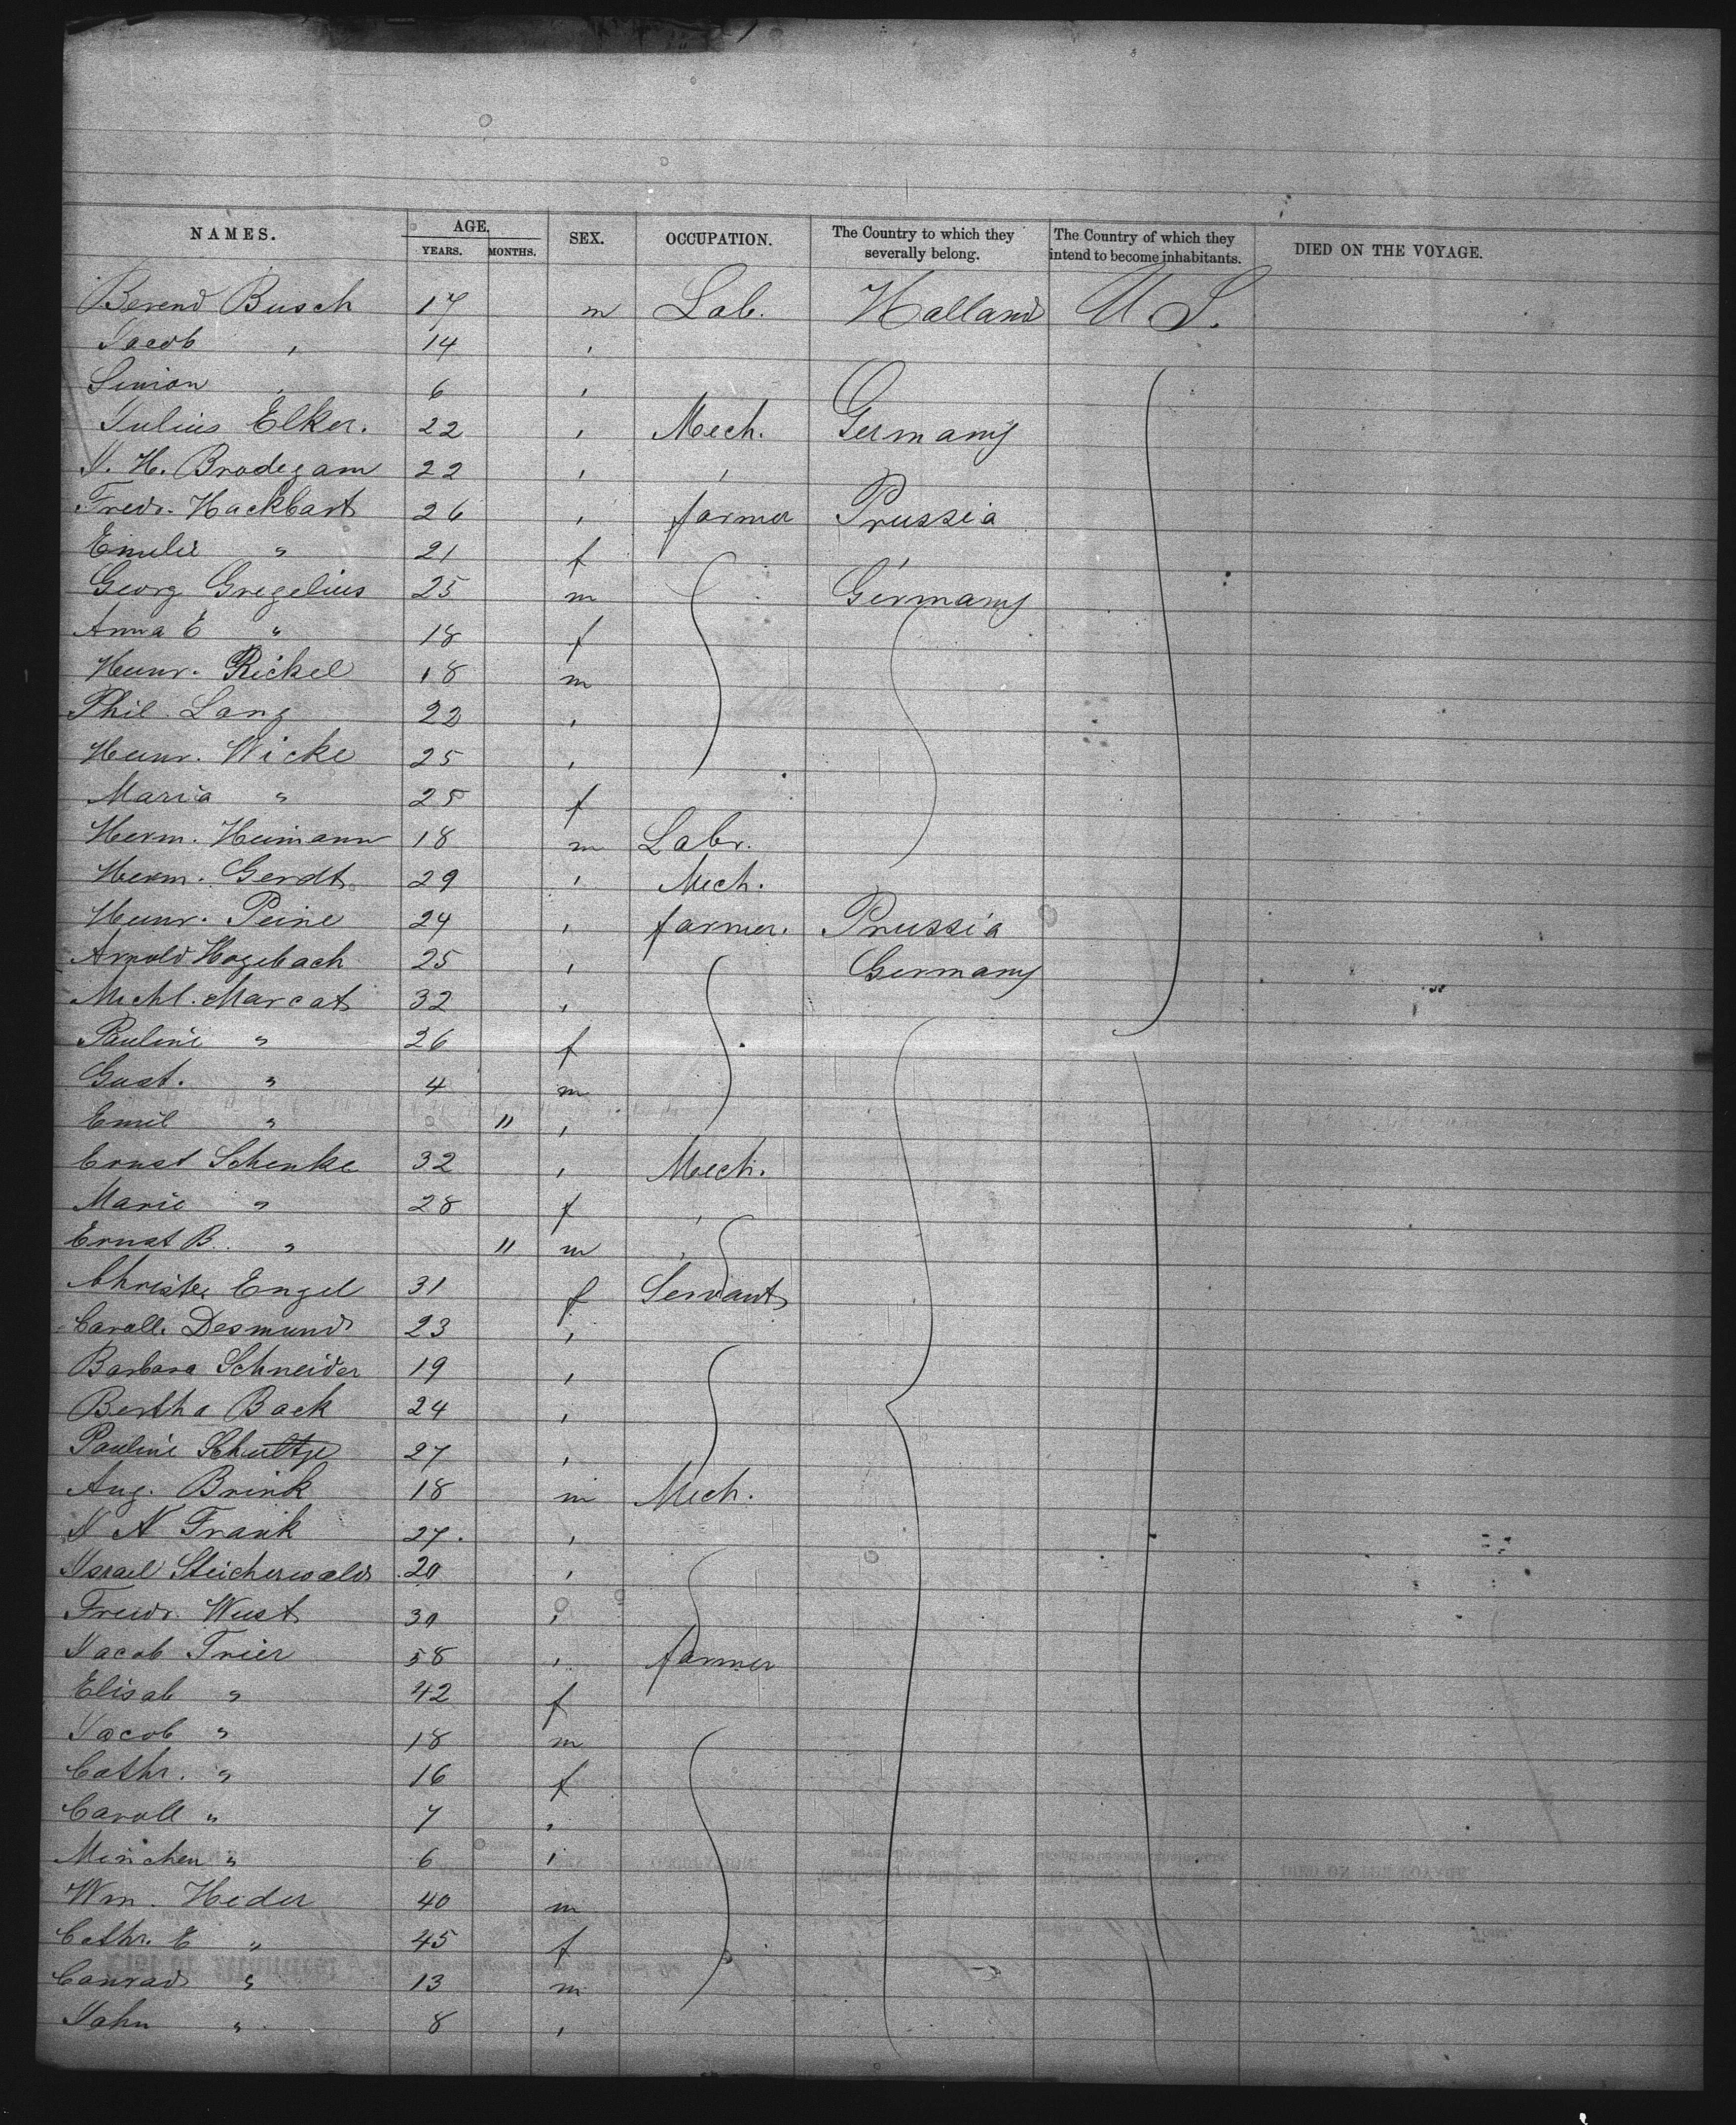 NAMES. AGE. YEARS. MONTHS. SEX. OCCUPATION. The Country to which they severally belong. The Country of which they intend to become inhabitants. DIED ON THE VOYAGE.
Berend Busch 17 m Lab. Holland U S.
Jacob " 14 "
Simon " 6 "
Julius Elker. 22 " Mech. Germany
J. H. Brodegam 22 " "
Fredr. Hackbart 26 " farmer Prussia
Emilie " 21 f "
Georg Gregelius 25 m Germany
Anna E " 18 f
Heinr. Rickel 18 m
Phil. Lang 22 "
Heinr. Wicke 25 "
Maria " 25 f
Herm. Heimann 18 m Labr.
Herm. Gerdt. 29 " Mech.
Heinr. Peine 24 " farmer. Prussia
Arnold Hogebach 25 " Germany
Michl. Marcat 32 "
Pauline " 26 f
Gust. " 4 m
Emil " 11 "
Ernst Schenke 32 " Mech.
Marie " 28 f "
Ernst B. " 11 m "
Christe. Engel 31 f Servant
Caroll. Desmund 23 "
Barbara Schneider 19 "
Bertha Back 24 "
Pauline Schultze 27 "
Aug. Brink 18 m Mech.
J N Frank 27. "
Israel Steicherwald 20 "
Friedr. Wust 30 "
Jacob Trier 58 " farmer
Elisab " 42 f
Jacob " 18 m
Cathr. " 16 f
Caroll " 7 "
Minchen " 6 "
Wm. Heder 40 m
Cathr. E " 45 f
Conrad " 13 m
John " 8 "